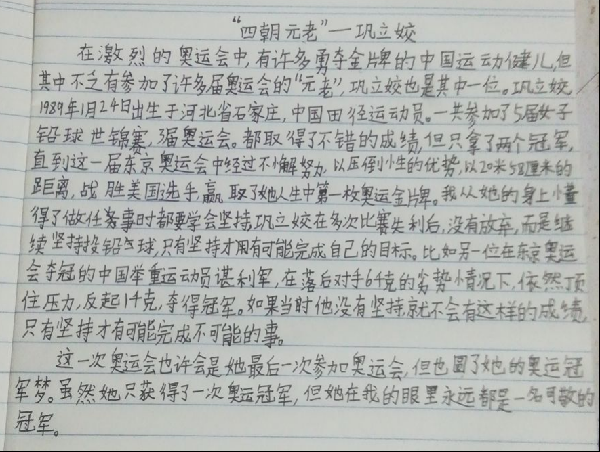 “四朝元老”—巩立姣
在激烈的奥运会中,有许多勇夺金牌的中国运动健儿,但
其中不乏有参加了许多届奥运会的“元老”,巩立姣也是其中一位。巩立姣,
1989年1月24日出生于河北省石家庄,中国田径运动员。一共参加了5届女子
铅球世锦赛,3届奥运会。都取得了不错的成绩,但只拿了两个冠军,
直到这一届东京奥运会中经过不懈努力,以压倒小生的优势,以20米58厘米的
距离,战胜美国选手,赢取了她人生中第一枚奥运金牌。我从她的身上懂
得了做任务事时都要学会坚持,巩立姣在多次比赛失利后,没有放弃,而是继
续坚持投铅球,只有坚持才用有可能完成自己的目标。比如另一位在东京奥运
会夺冠的中国举重运动员谌利军,在落后对手6千克的劣势情况下,依然顶
住压力,反起1千克,夺得冠军。如果当时他没有坚持,就不会有这样的成绩,
只有坚持才有可能完成不可能的事。
这一次奥运会也许会是她最后一次参加奥运会,但也圆了她的奥运冠
军梦。虽然她只获得了一次奥运冠军,但她在我的眼里永远都是一名可敬的
冠军。